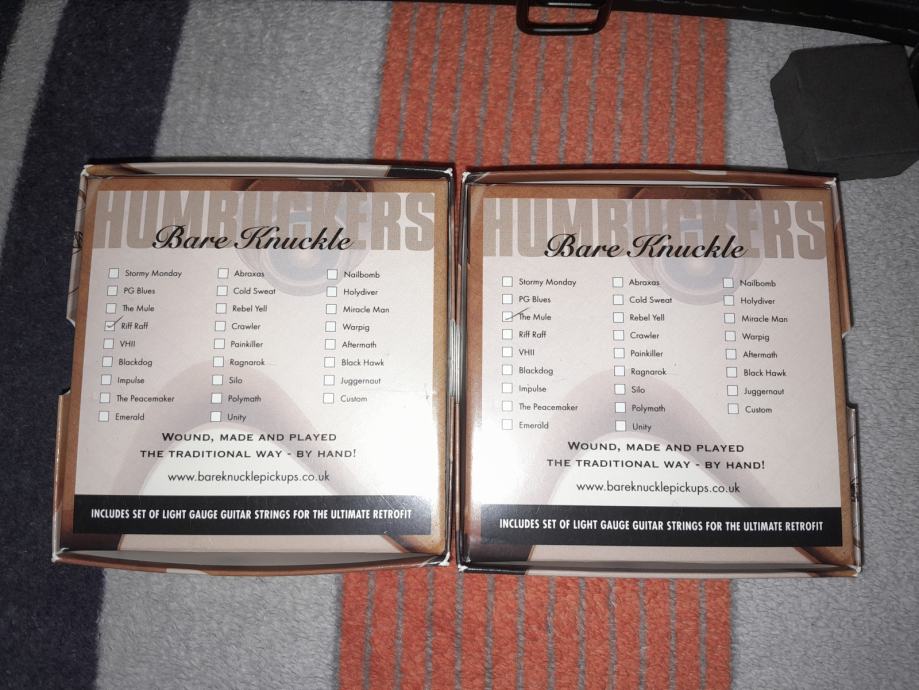 HUMBUCKERS
Bare Knuckle
Stormy Monday
PG Blues
The Mule
Riff Raff
VHII
Blackdog
Impulse
The Peacemaker
Emerald
Abraxas
Cold Sweat
Rebel Yell
Crawler
Painkiller
Ragnarok
Silo
Polymath
Unity
Nailbomb
Holydiver
Miracle Man
Warpig
Aftermath
Black Hawk
Juggernaut
Custom
WOUND, MADE AND PLAYED
THE TRADITIONAL WAY - BY HAND!
www.bareknucklepickups.co.uk
INCLUDES SET OF LIGHT GAUGE GUITAR STRINGS FOR THE ULTIMATE RETROFIT
HUMBUCKERS
Bare Knuckle
Stormy Monday
PG Blues
The Mule
Riff Raff
VHII
Blackdog
Impulse
The Peacemaker
Emerald
Abraxas
Cold Sweat
Rebel Yell
Crawler
Painkiller
Ragnarok
Silo
Polymath
Unity
Nailbomb
Holydiver
Miracle Man
Warpig
Aftermath
Black Hawk
Juggernaut
Custom
WOUND, MADE AND PLAYED
THE TRADITIONAL WAY - BY HAND!
www.bareknucklepickups.co.uk
INCLUDES SET OF LIGHT GAUGE GUITAR STRINGS FOR THE ULTIMATE RETROFIT